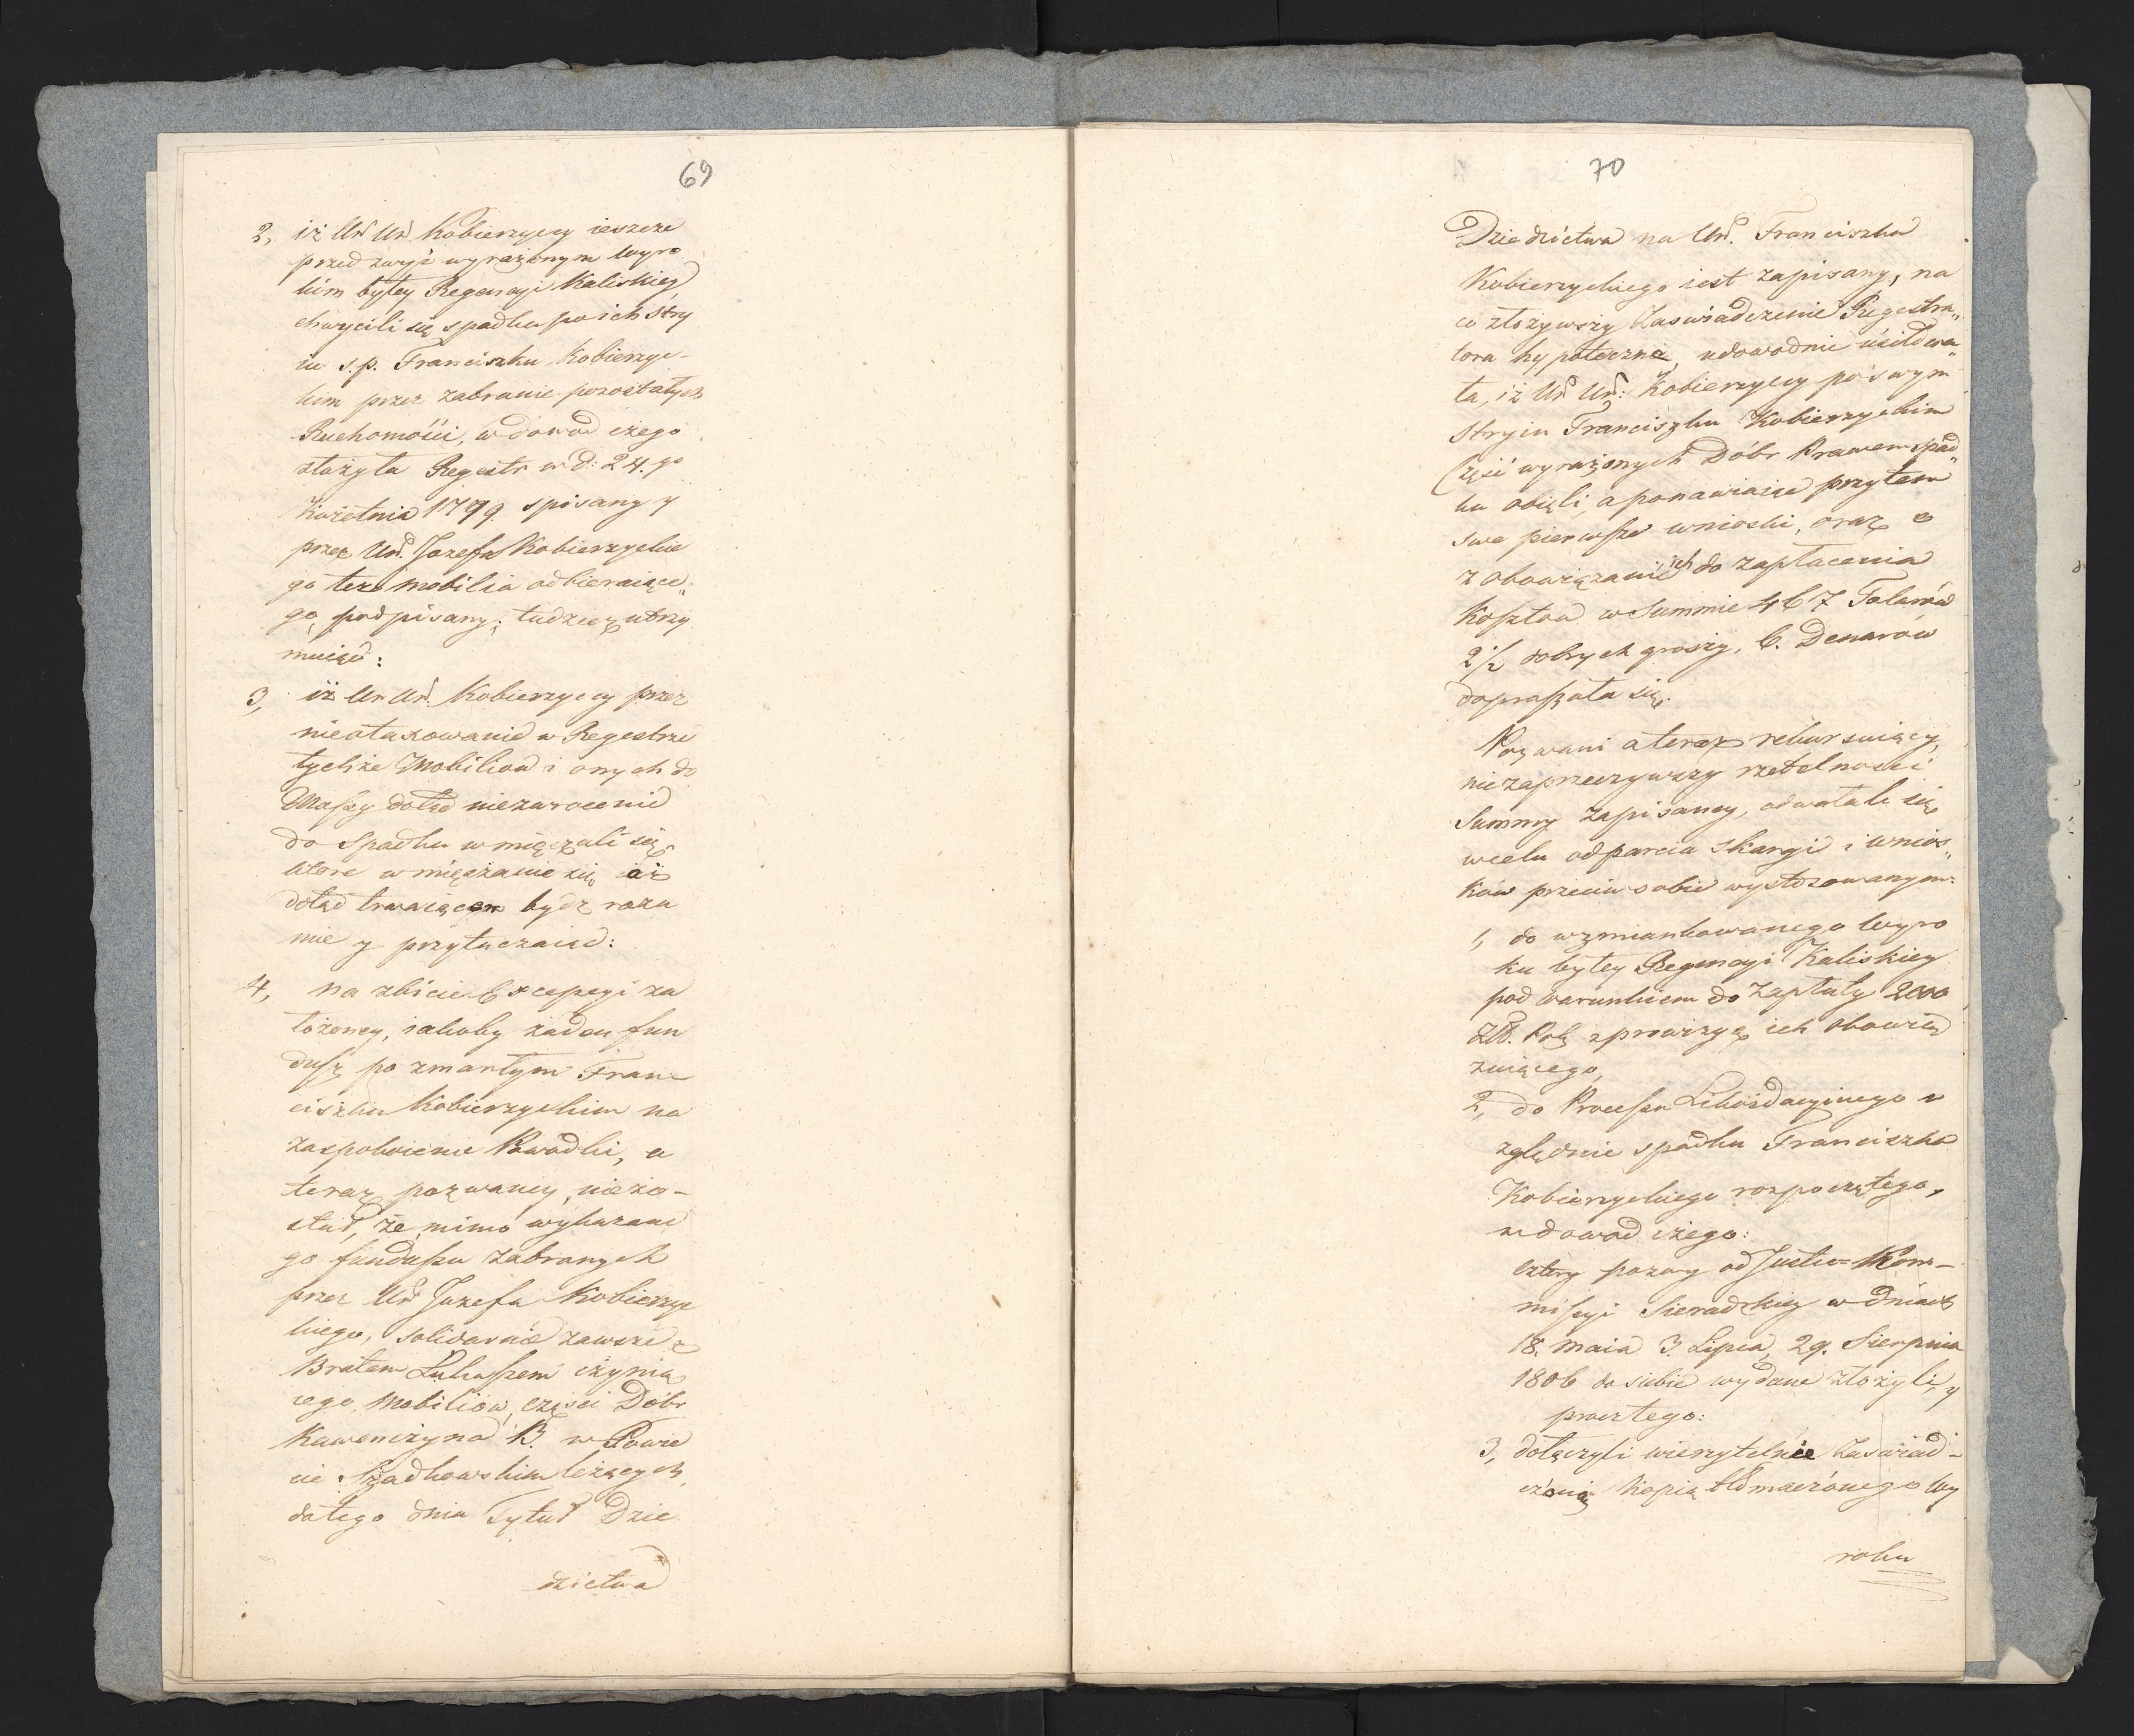 69
2, iż Ur Ur Kobierzyccy ieszcze
przed zwyż wyrażonym wyro
kiem byłey Regencyi Kaliskiey
chwycili się spadku po ich Stry
iu s. p. Franciszku Kobierzyc-
kim przez zabranie pozostałych
Ruchomości, w dowod czego
złożyła Regestr w d: 24. go
Kwietnia 1799 spisany y
przez Ur. Jozefa Kobierzyckie
go też mobilia odbieraiące„
go podpisany; tudzież utrzy
muiąc:
3, iż Ur Ur. Kobierzyccy przez
nieotaxowanie w Regestrze
tychże Mobiliow i onych do
Massy dotąd niezwrocenie
do Spadku wmięszali się
ktore wmięszanie się iaż
dotąd trwaiącem bydź rozu
mie y przytaczaiąc:
4, na zbicie Excepcyi za
łożoney, iakoby żaden fun
dusz po zmarłym Fran-
ciszku Kobierzyckim na
zaspokoienie Powodki, a
teraz pozwaney, niezo-
stał, że mimo wykazane
go funduszu zabranych
przez Ur Jozefa Kobierzyc
kiego, solidarnie zawsze z
Bratem Łukaszem czynią
cego, Mobiliów, części Dóbr
Kawenczyna B. w Powie
cie Szadkowskim leżących,
do tego dnia Tytuł Dzie
dzictwa
70
Dziedzictwa na Ur. Franciszka
Kobierzyckiego iest zapisany, na
co złożywszy Zaswiadczenie Regestra„
tora hypoteczne, udowodnić usiłowa„
ła, iż Ur Ur: Kobierzyccy po swym
Stryiu Franciszku Kobierzyckim
Część wyrażonych Dóbr Prawem spad„
ku obięli, a ponawiaiąc przytem
swe pierwsze wnioski, oraz o
zobowiązanie ich do zapłacenia
Kosztow w Summie 467 Talarów
2½ dobrych groszy, 6. Denarów
dopraszała się.
Pozwani a teraz rekursuiący,
niezaprzeczywszy rzetelności
Summy zapisaney, odwołali się
wcelu odparcia Skargi i wnios„
ków przeciw sobie wystosowanym:
1, do wzmiankowanego Wyro
ku byłey Regencyi Kaliskiey
pod warunkiem do zapłaty 2000
Zł. Pol: z prowizyą ich obowią
zuiącego,
2, do Processu Likwidacyinego w
zględnie spadku Franciszka
Kobierzyckiego rozpoczętego,
w dowod czego:
cztery pozwy od Justic=Kom-
missyi Sieradzkiey w dniach
18. Maia 3. Lipca, 29. Sierpnia
1806 do siebie wydane złożyli, y
procz tego:
3, dołączyli wierzytelnie Zaswiad-
czoną kopią tłomaczonego Wy
roku